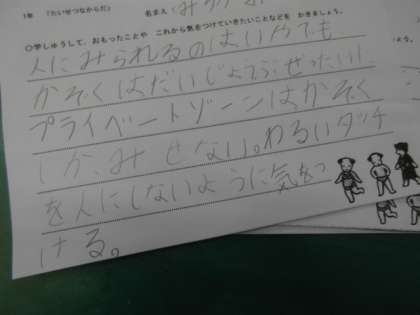 1年 「たいせつなからだ」 名まえ
○学しゅうして、おもったことや これから気をつけていきたいことなどを かきましょう。
人にみられるのはいやでも
かぞくはだいじょうぶ。ぜったい!
プライベートゾーンはかぞく
しか、みせない。わるいタッチ
を人にしないように気をつ
ける。